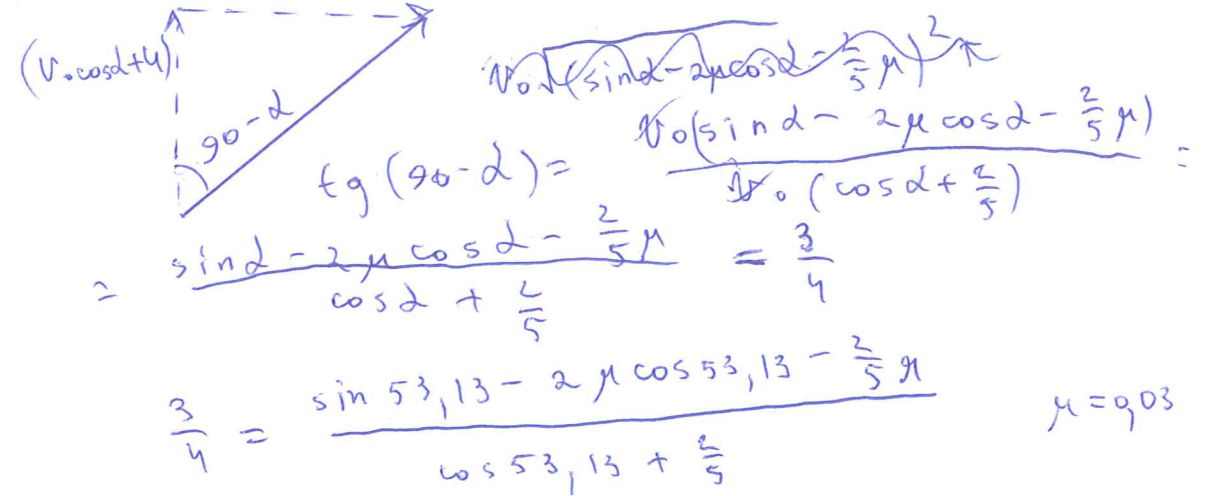 (v₀cosα+u)
90-α
v₀√(sinα-2μcosα-2/5 μ)²
tg(90-α) = v₀(sinα - 2μcosα - 2/5 μ) / v₀(cosα + 2/5) =
= (sinα - 2μcosα - 2/5 μ) / (cosα + 2/5) = 3/4
3/4 = (sin 53,13 - 2μcos 53,13 - 2/5 μ) / (cos 53,13 + 2/5)
μ = 0,03